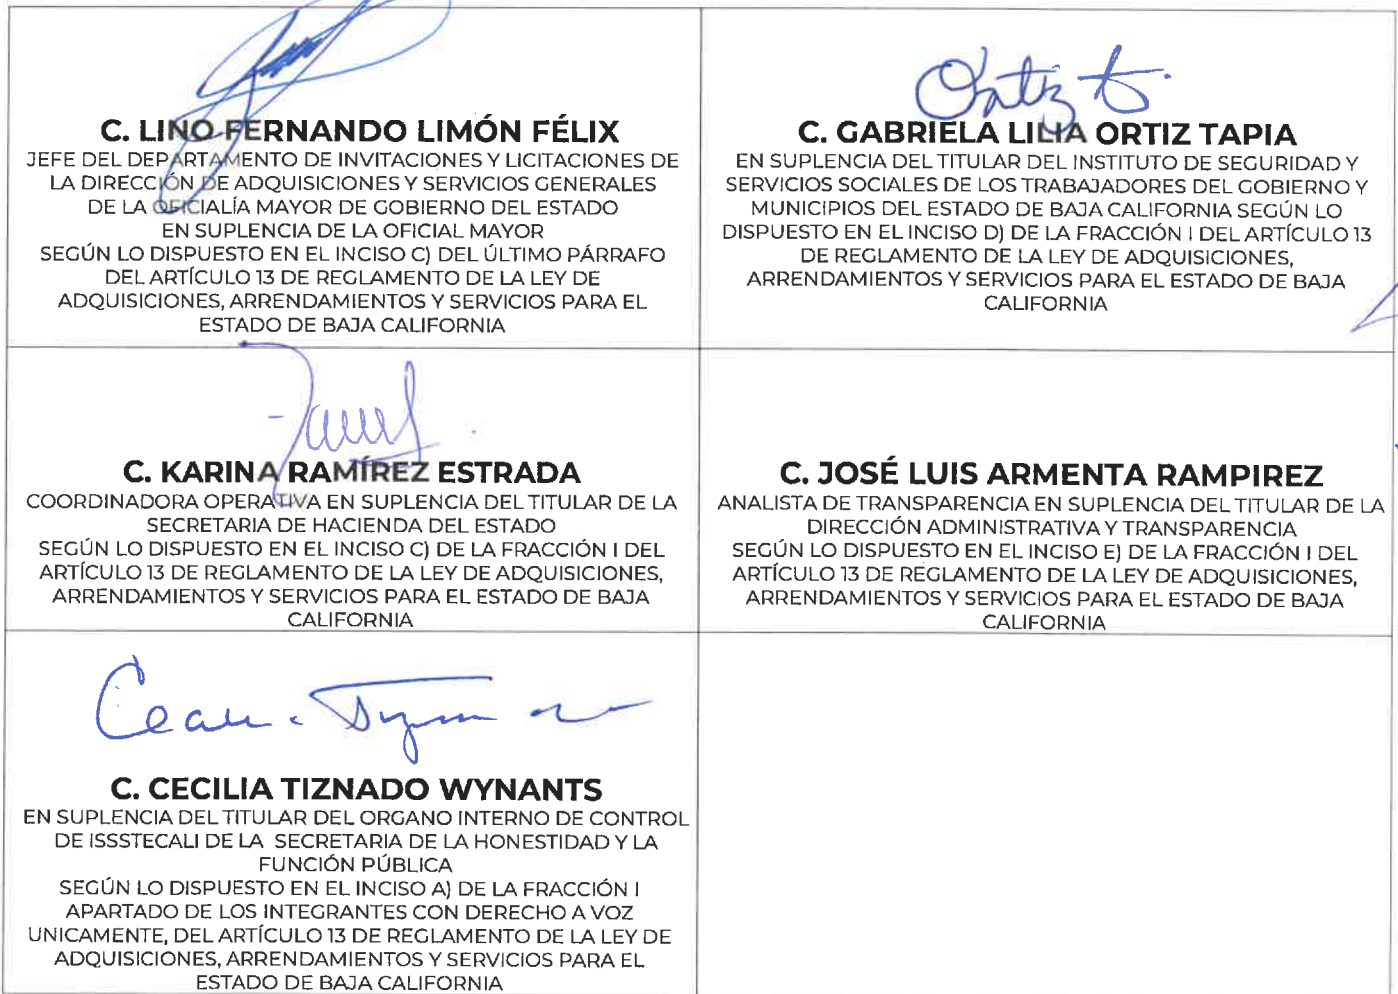 C. LINO FERNANDO LIMÓN FÉLIX
JEFE DEL DEPARTAMENTO DE INVITACIONES Y LICITACIONES DE
LA DIRECCIÓN DE ADQUISICIONES Y SERVICIOS GENERALES
DE LA OFICIALÍA MAYOR DE GOBIERNO DEL ESTADO
EN SUPLENCIA DE LA OFICIAL MAYOR
SEGÚN LO DISPUESTO EN EL INCISO C) DEL ÚLTIMO PÁRRAFO
DEL ARTÍCULO 13 DE REGLAMENTO DE LA LEY DE
ADQUISICIONES, ARRENDAMIENTOS Y SERVICIOS PARA EL
ESTADO DE BAJA CALIFORNIA
Ortiz t.
C. GABRIELA LILIA ORTIZ TAPIA
EN SUPLENCIA DEL TITULAR DEL INSTITUTO DE SEGURIDAD Y
SERVICIOS SOCIALES DE LOS TRABAJADORES DEL GOBIERNO Y
MUNICIPIOS DEL ESTADO DE BAJA CALIFORNIA SEGÚN LO
DISPUESTO EN EL INCISO D) DE LA FRACCIÓN I DEL ARTÍCULO 13
DE REGLAMENTO DE LA LEY DE ADQUISICIONES,
ARRENDAMIENTOS Y SERVICIOS PARA EL ESTADO DE BAJA
CALIFORNIA
C. KARINA RAMÍREZ ESTRADA
COORDINADORA OPERATIVA EN SUPLENCIA DEL TITULAR DE LA
SECRETARIA DE HACIENDA DEL ESTADO
SEGÚN LO DISPUESTO EN EL INCISO C) DE LA FRACCIÓN I DEL
ARTÍCULO 13 DE REGLAMENTO DE LA LEY DE ADQUISICIONES,
ARRENDAMIENTOS Y SERVICIOS PARA EL ESTADO DE BAJA
CALIFORNIA
C. JOSÉ LUIS ARMENTA RAMPIREZ
ANALISTA DE TRANSPARENCIA EN SUPLENCIA DEL TITULAR DE LA
DIRECCIÓN ADMINISTRATIVA Y TRANSPARENCIA
SEGÚN LO DISPUESTO EN EL INCISO E) DE LA FRACCIÓN I DEL
ARTÍCULO 13 DE REGLAMENTO DE LA LEY DE ADQUISICIONES,
ARRENDAMIENTOS Y SERVICIOS PARA EL ESTADO DE BAJA
CALIFORNIA
C. CECILIA TIZNADO WYNANTS
EN SUPLENCIA DEL TITULAR DEL ORGANO INTERNO DE CONTROL
DE ISSSTECALI DE LA SECRETARIA DE LA HONESTIDAD Y LA
FUNCIÓN PÚBLICA
SEGÚN LO DISPUESTO EN EL INCISO A) DE LA FRACCIÓN I
APARTADO DE LOS INTEGRANTES CON DERECHO A VOZ
UNICAMENTE, DEL ARTÍCULO 13 DE REGLAMENTO DE LA LEY DE
ADQUISICIONES, ARRENDAMIENTOS Y SERVICIOS PARA EL
ESTADO DE BAJA CALIFORNIA